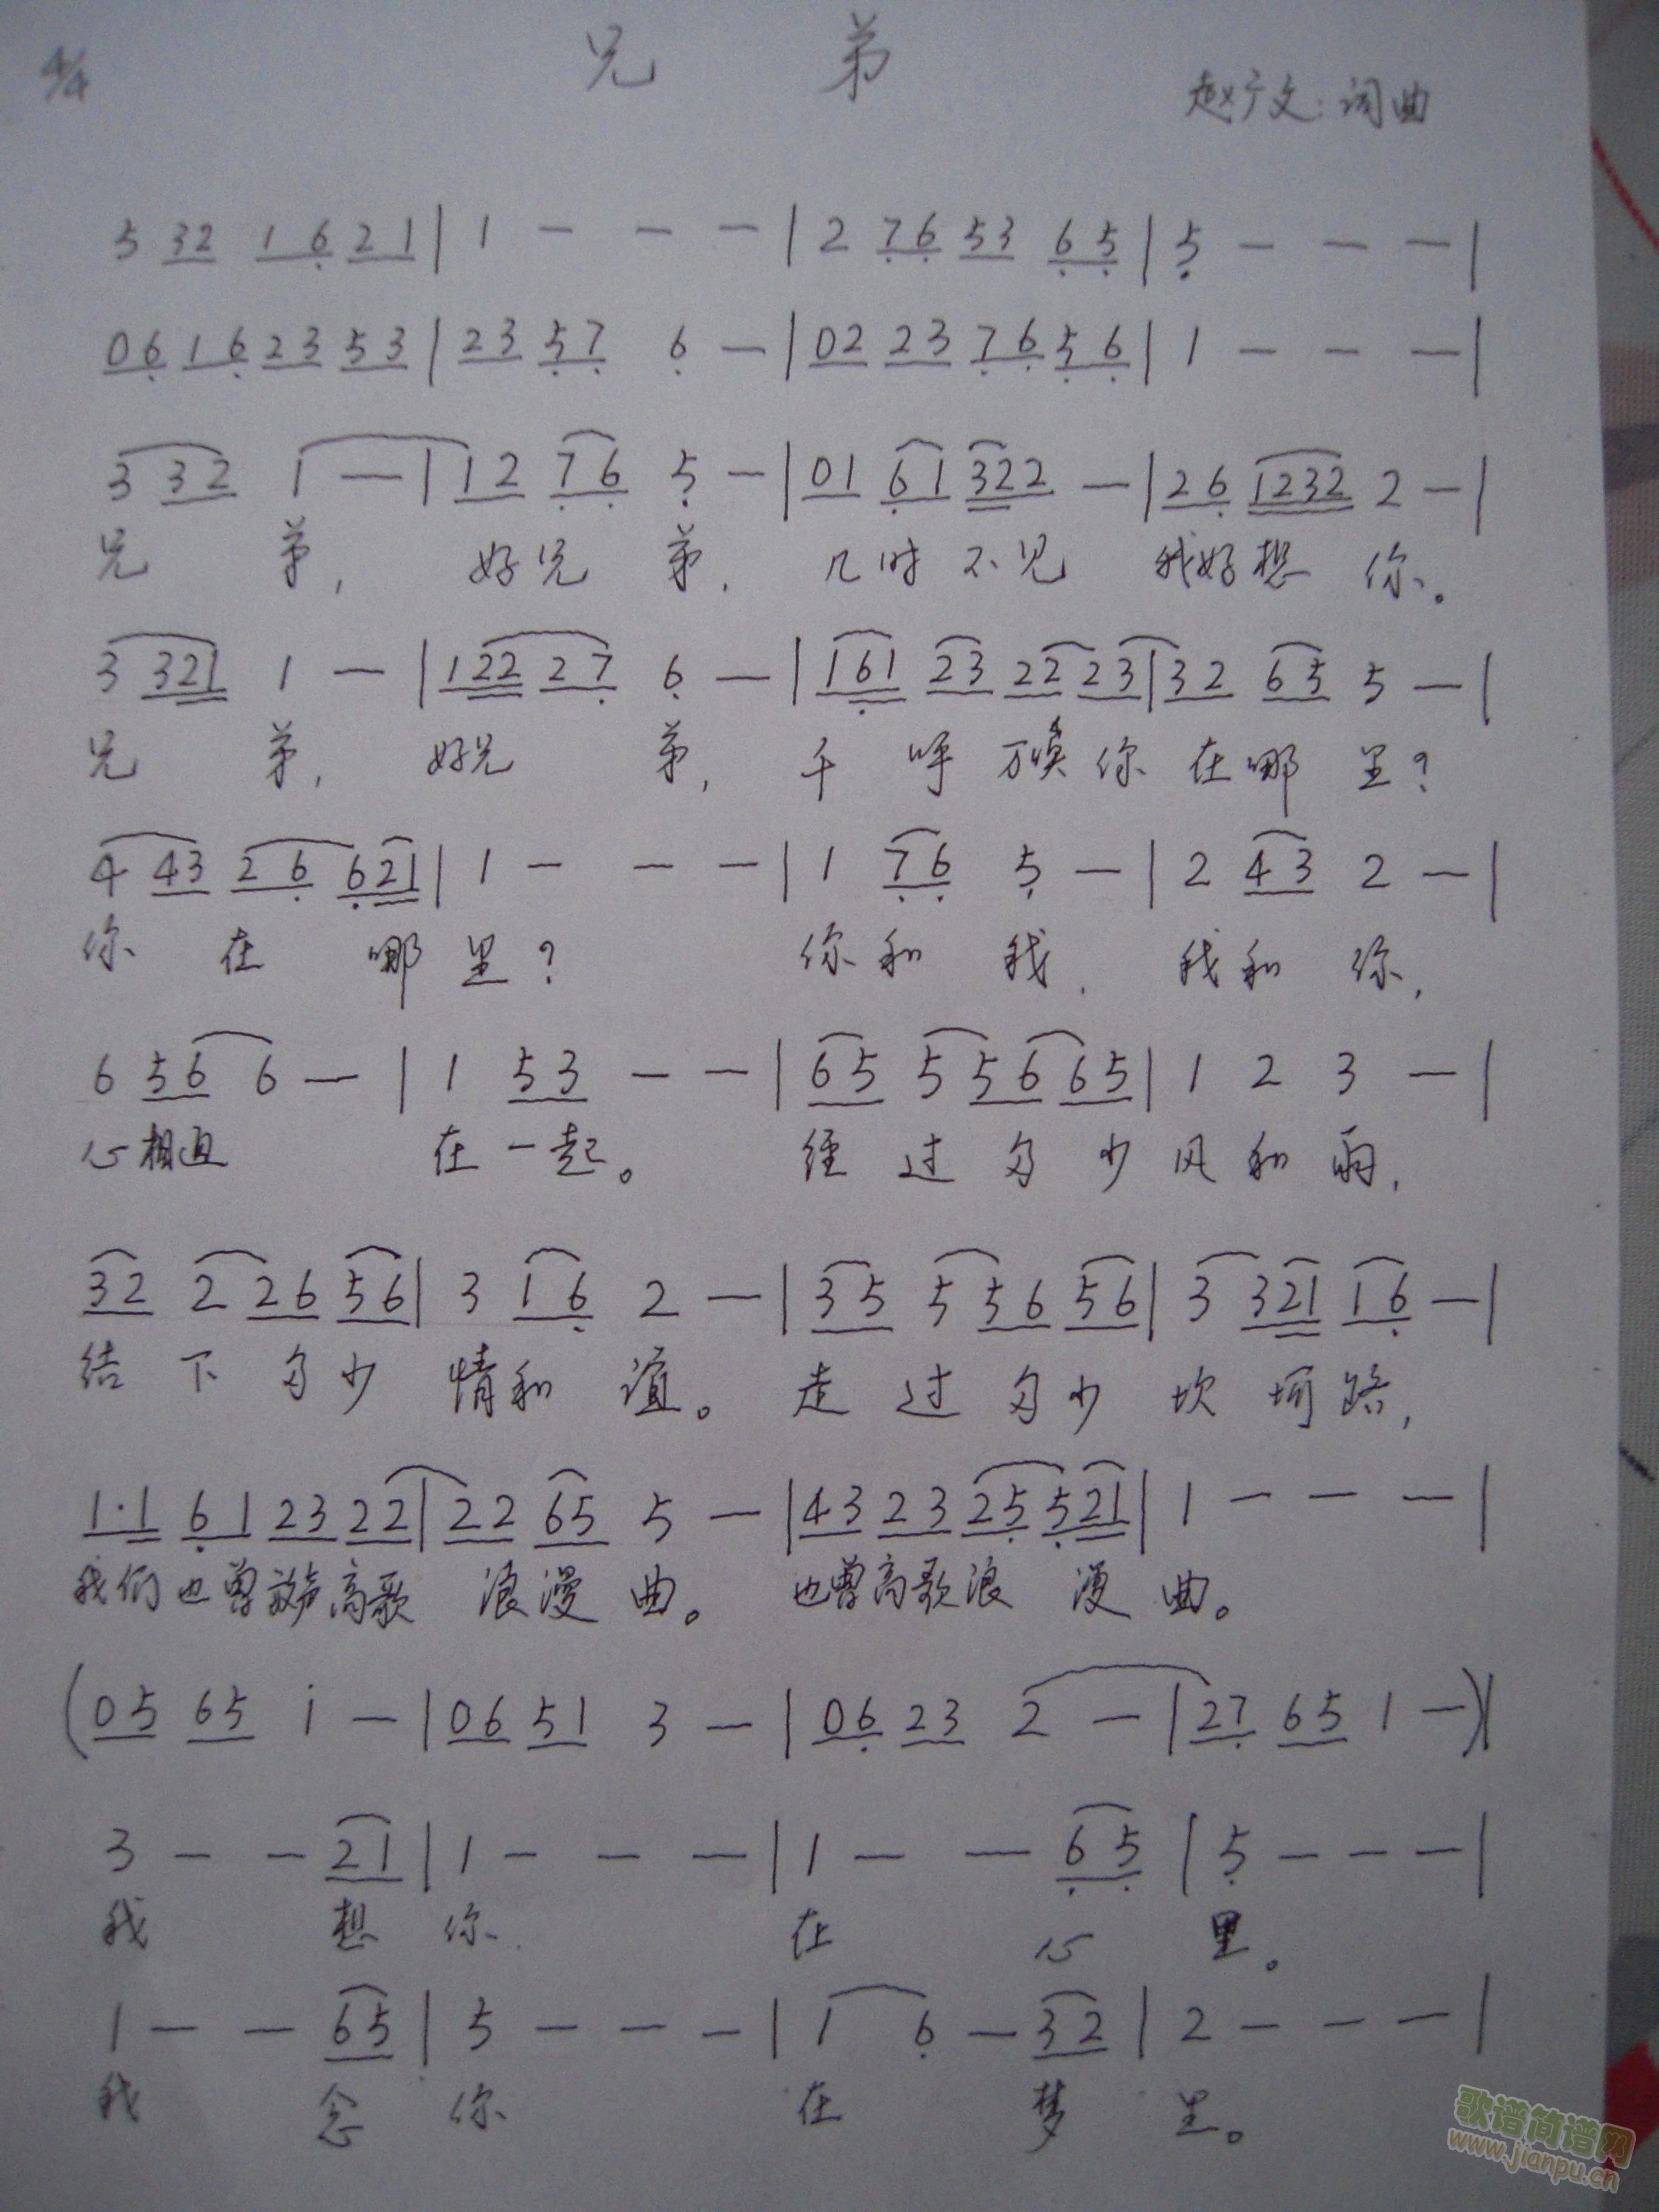 4/4 兄 弟
赵广文:词曲
5 32 16 21 | 1 - - - | 2 76 53 65 | 5 - - - |
06 16 23 53 | 23 57 6 - | 02 23 76 56 | 1 - - - |
3 32 1 - | 12 76 5 - | 01 61 322 - | 26 1232 2 - |
兄 弟, 好兄 弟, 几时不见 我好想 你。
3 321 1 - | 122 27 6 - | 161 23 22 23 | 32 65 5 - |
兄 弟, 好兄 弟, 千 呼 万唤你 在哪 里?
4 43 26 621 | 1 - - - | 1 76 5 - | 2 43 2 - |
你 在 哪 里? 你和 我, 我和 你,
6 56 6 - | 1 53 - - | 65 5 56 65 | 1 2 3 - |
心相通 在一起。 经 过 多 少 风 和 雨,
32 2 26 56 | 3 16 2 - | 35 5 56 56 | 3 321 16 - |
结 下 多少 情和 谊。 走 过 多少 坎 坷路,
1·1 61 23 22 | 22 65 5 - | 43 23 25 521 | 1 - - - |
我们也曾放声高歌 浪漫 曲。 也曾高歌浪 漫 曲。
(05 65 i - | 06 51 3 - | 06 23 2 - | 27 65 1 - )|
3 - - 21 | 1 - - - | 1 - - 65 | 5 - - - |
我 想 你, 在 心 里。
1 - - 65 | 5 - - - | 1 6 - 32 | 2 - - - |
我 念 你 在 梦 里。
歌谱简谱网
www.jianpu.cn